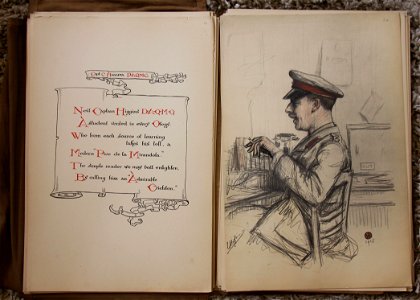 Capt C. Higgins DA·QMG
Neil Captain Higgins DA·QMG
A student versed in every Ology.
Who from each Source of learning
takes his toll, a
Modern "Pico de la Mirandola."
The simple reader we may best enlighten,
By calling him an Admirable
Crichton."